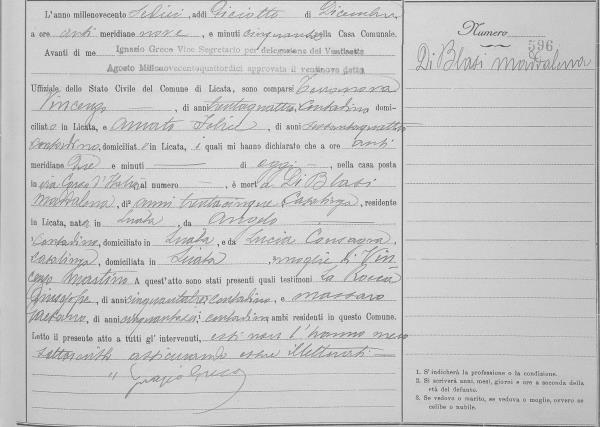 L'anno millenovecento sedici, addì diciotto di Dicembre,
a ore anti meridiane nove, e minuti cinquanta, nella Casa Comunale.
Avanti di me Ignazio Greco Vice Segretario per delegazione del Ventisette
Agosto Millenovecentoquattordici approvata il ventinove detto
Uffiziale dello Stato Civile del Comune di Licata, sono comparsi Terranova
Vincenzo, di anni trentaquattro, contadino domi-
ciliato in Licata, e Amato, di anni sessantaquattro
contadino, domiciliato in Licata, i quali mi hanno dichiarato che a ore anti
meridiane tre e minuti — di oggi, nella casa posta
in via Corso d'Italia al numero —, è morta Di Blasi
Maddalena, di anni trentacinque, casalinga, residente
in Licata, nata in Licata, da Angelo
contadino, domiciliato in Licata, e da Lucia Consagra
casalinga, domiciliata in Licata, moglie di Vin
cenzo Mastino. A quest'atto sono stati presenti quali testimoni La Rocca
Giuseppe, di anni contadino, e Massaro
Gaetano, di anni contadino, ambi residenti in questo Comune.
Letto il presente atto a tutti gl'intervenuti, essi non l'hanno meco
sottoscritto assicurando essere illetterati
Ignazio Greco
Numero 596
Di Blasi Maddalena
1. S'indicherà la professione o la condizione.
2. Si scriverà anni, mesi, giorni e ore a seconda della
età del defunto.
3. Se vedovo o marito, se vedova o moglie, ovvero se
celibe o nubile.